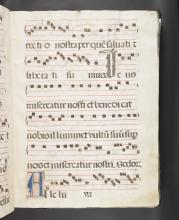 recti o nostra per quē saluati t
libera ti su mus D eus
misereatur nostri et benedicat
nobis illuminet vultū suū sup
nos et misereatur nostri.
A lle lu ya